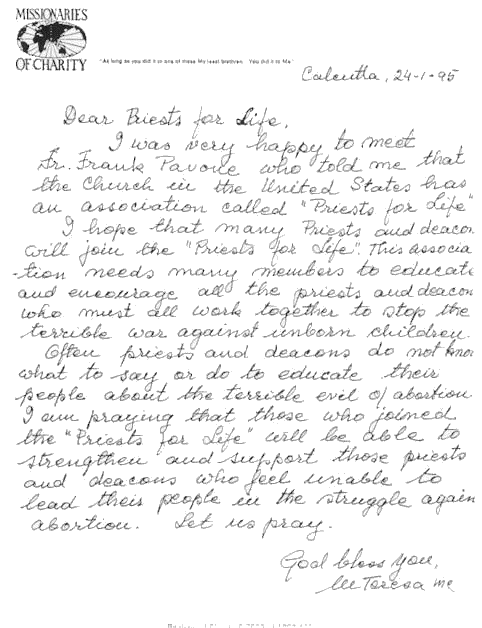 MISSIONARIES
OF CHARITY
"As long as you did it to one of these My least brethren. You did it to Me"
Calcutta, 24-1-95
Dear Priests for Life,
I was very happy to meet
Fr. Frank Pavone who told me that
the Church in the United States has
an association called "Priests for Life"
I hope that many Priests and deacon
will join the "Priests for Life". This associa
-tion needs many members to educate
and encourage all the priests and deacon
who must all work together to stop the
terrible war against unborn children.
Often priests and deacons do not know
what to say or do to educate their
people about the terrible evil of abortion
I am praying that those who joined
the "Priests for Life" will be able to
strengthen and support those priests
and deacons who feel unable to
lead their people in the struggle again
abortion. Let us pray.
God bless you,
M Teresa mc